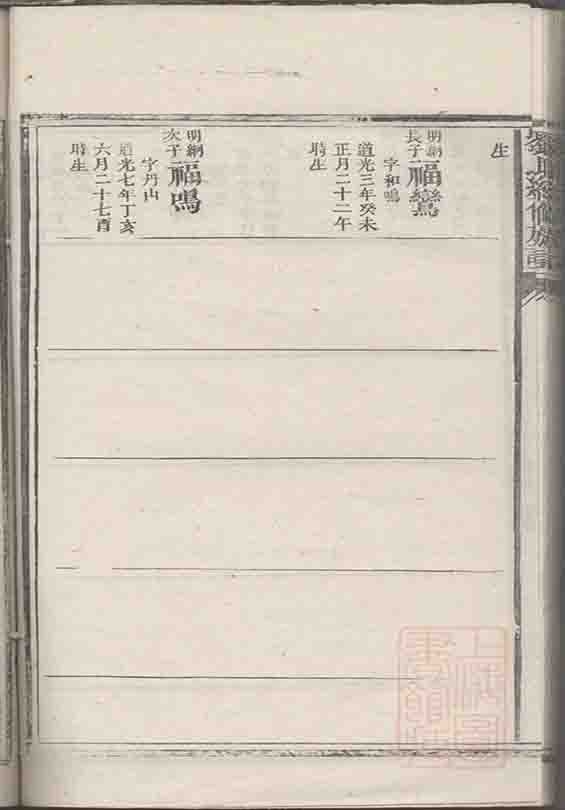 生
明綱
長子福鸞
字和鳴
道光三年癸未
正月二十二午
時生
明綱
次子福鳴
字丹山
道光七年丁亥
六月二十七酉
時生
修族譜